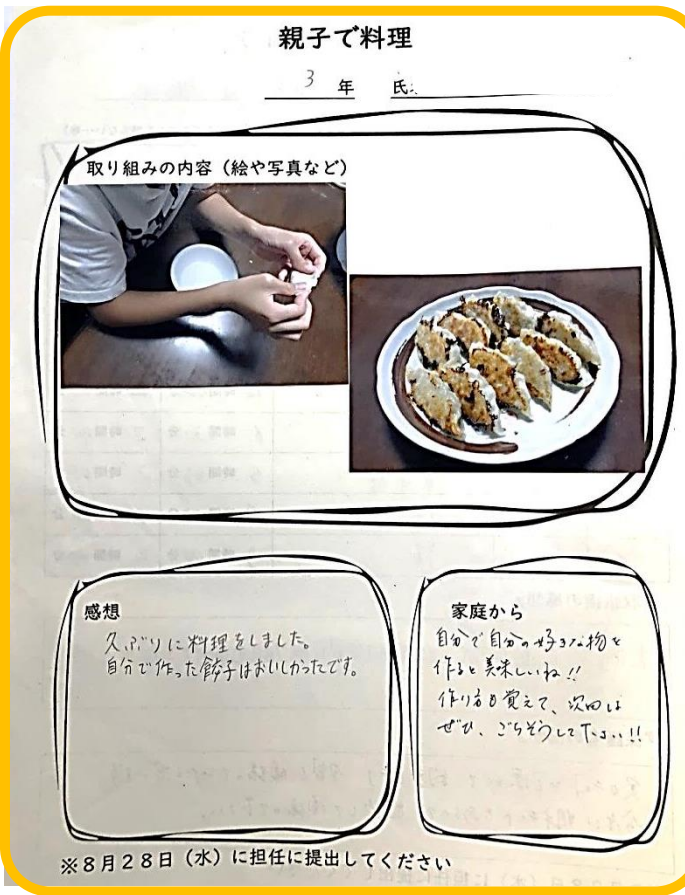 親子で料理
3 年 氏
取り組みの内容（絵や写真など）
感想
久ぶりに料理をしました。
自分で作った餃子はおいしかったです。
家庭から
自分で自分の好きな物を
作ると美味しいね!!
作り方も覚えて、次回は
ぜひ、ごちそうして下さい!!
※８月２８日（水）に担任に提出してください